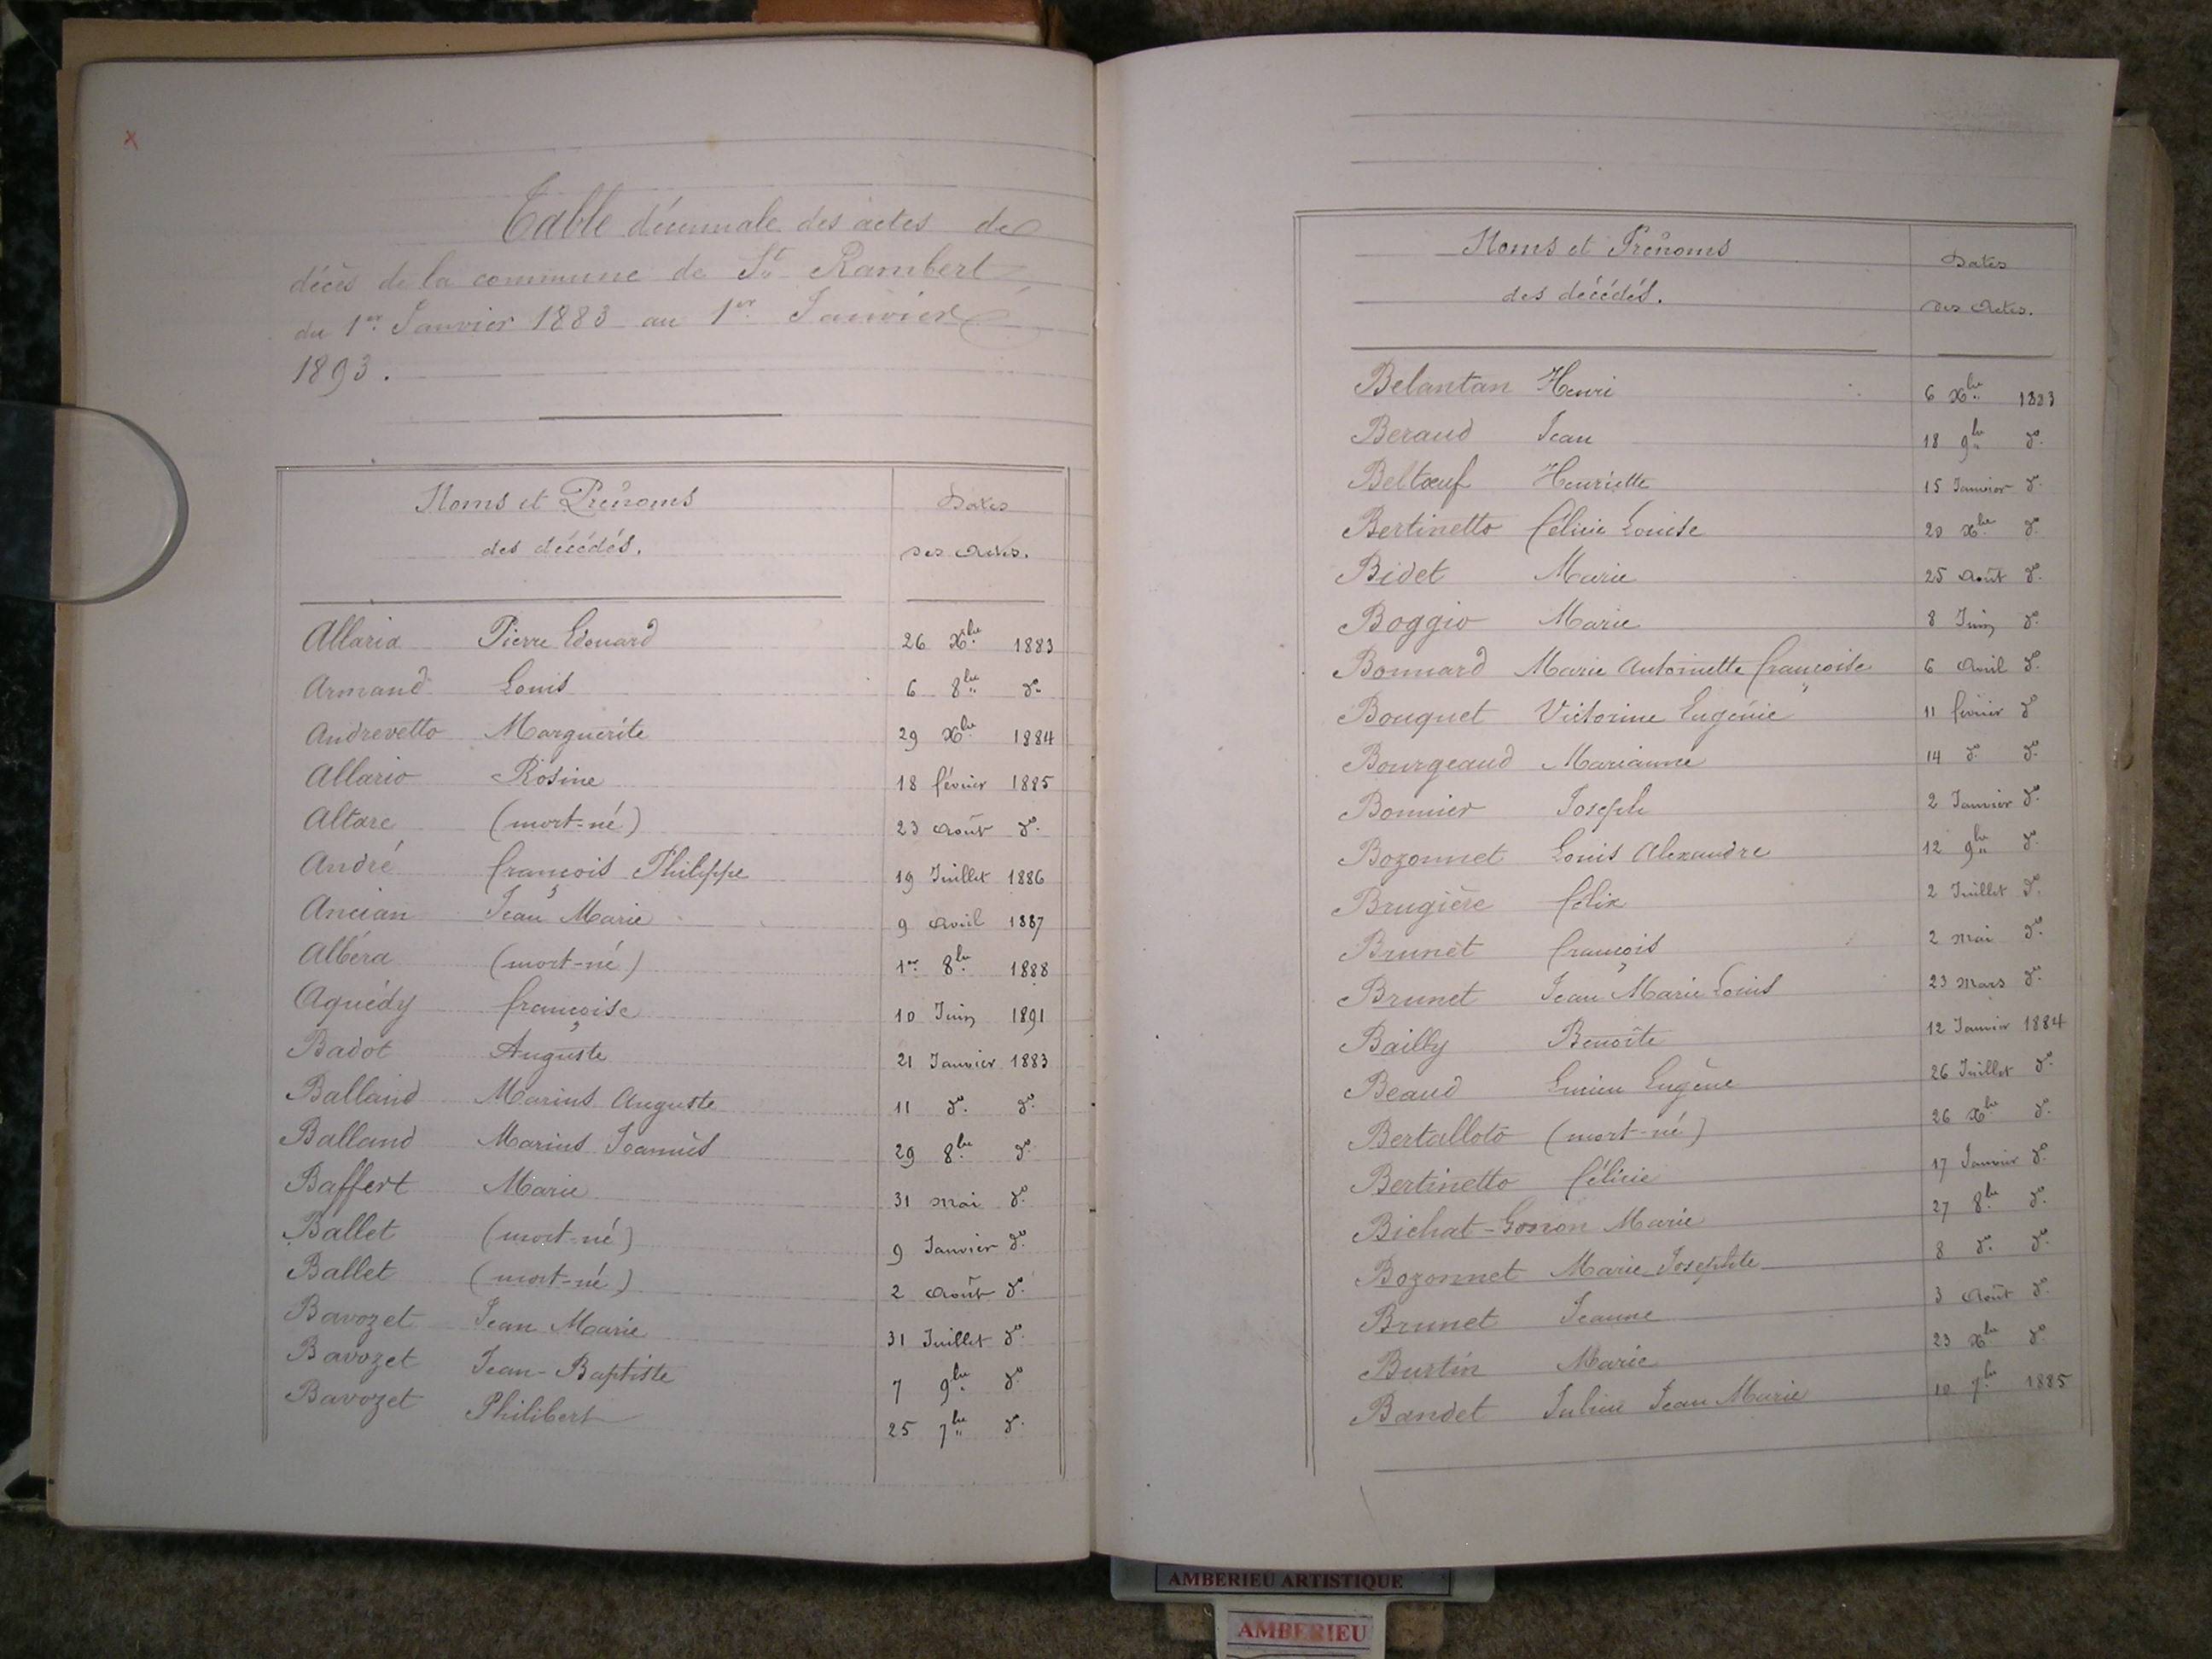 Table décennale des actes de
décès de la commune de St Rambert
du 1er Janvier 1883 au 1er Janvier
1893.
Noms et Prénoms
des décédés.
Dates
des Actes.
Allaria Pierre Edouard 26 Xbre 1883
Armand Louis 6 8bre do
Andrevetto Marguerite 29 Xbre 1884
Allario Rosine 18 février 1885
Altare (mort-né) 23 Août do
André françois Philippe 19 Juillet 1886
Ancian Jean Marie 9 Avril 1887
Albéra (mort-né) 1er 8bre 1888
Aguédy françoise 10 Juin 1891
Badot Auguste 21 Janvier 1883
Balland Marius Auguste 11 do do
Balland Marius Joannès 29 8bre do
Baffert Marie 31 Mai do
Ballet (mort-né) 9 Janvier do
Ballet (mort-né) 2 Août do
Bavozet Jean Marie 31 Juillet do
Bavozet Jean-Baptiste 7 9bre do
Bavozet Philibert 25 7bre do
Noms et Prénoms
des décédés.
Dates
des Actes.
Belantan Henri 6 Xbre 1883
Beraud Jean 18 9bre do
Henriette 15 Janvier do
Bertinetto félicie Louise 20 Xbre do
Bidet Marie 25 Août do
Boggio Marie 8 Juin do
Bonnard Marie Antoinette françoise 6 Avril do
Bouquet Victorine Eugénie 11 février do
Bourgeaud Marianne 14 do do
Bonnier Joseph 2 Janvier do
Bozonnet Louis Alexandre 12 9bre do
Brugière félix 2 Juillet do
Brunet françois 2 Mai do
Brunet Jean Marie Louis 23 Mars do
Bailly Benoîte 12 Janvier 1884
Beaud Lucien Eugène 26 Juillet do
Bertalloto (mort-né) 26 Xbre do
Bertinetto félicie 17 Janvier do
Bichat-Gonon Marie 27 8bre do
Bozonnet Marie Josephte 8 do do
Brunet Jeanne 3 Août do
Burtin Marie 23 Xbre do
Bandet Julien Jean Marie 10 7bre 1885
AMBERIEU ARTISTIQUE
AMBERIEU